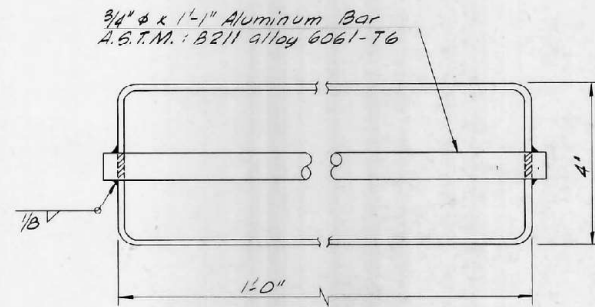 3/4" ø x 1'-1" Aluminum Bar
A.S.T.M. : B211 alloy 6061-T6
4"
1/8
1'-0"